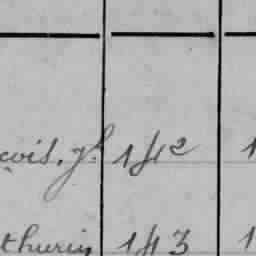 çois. gh 142 1
thurin 143 1